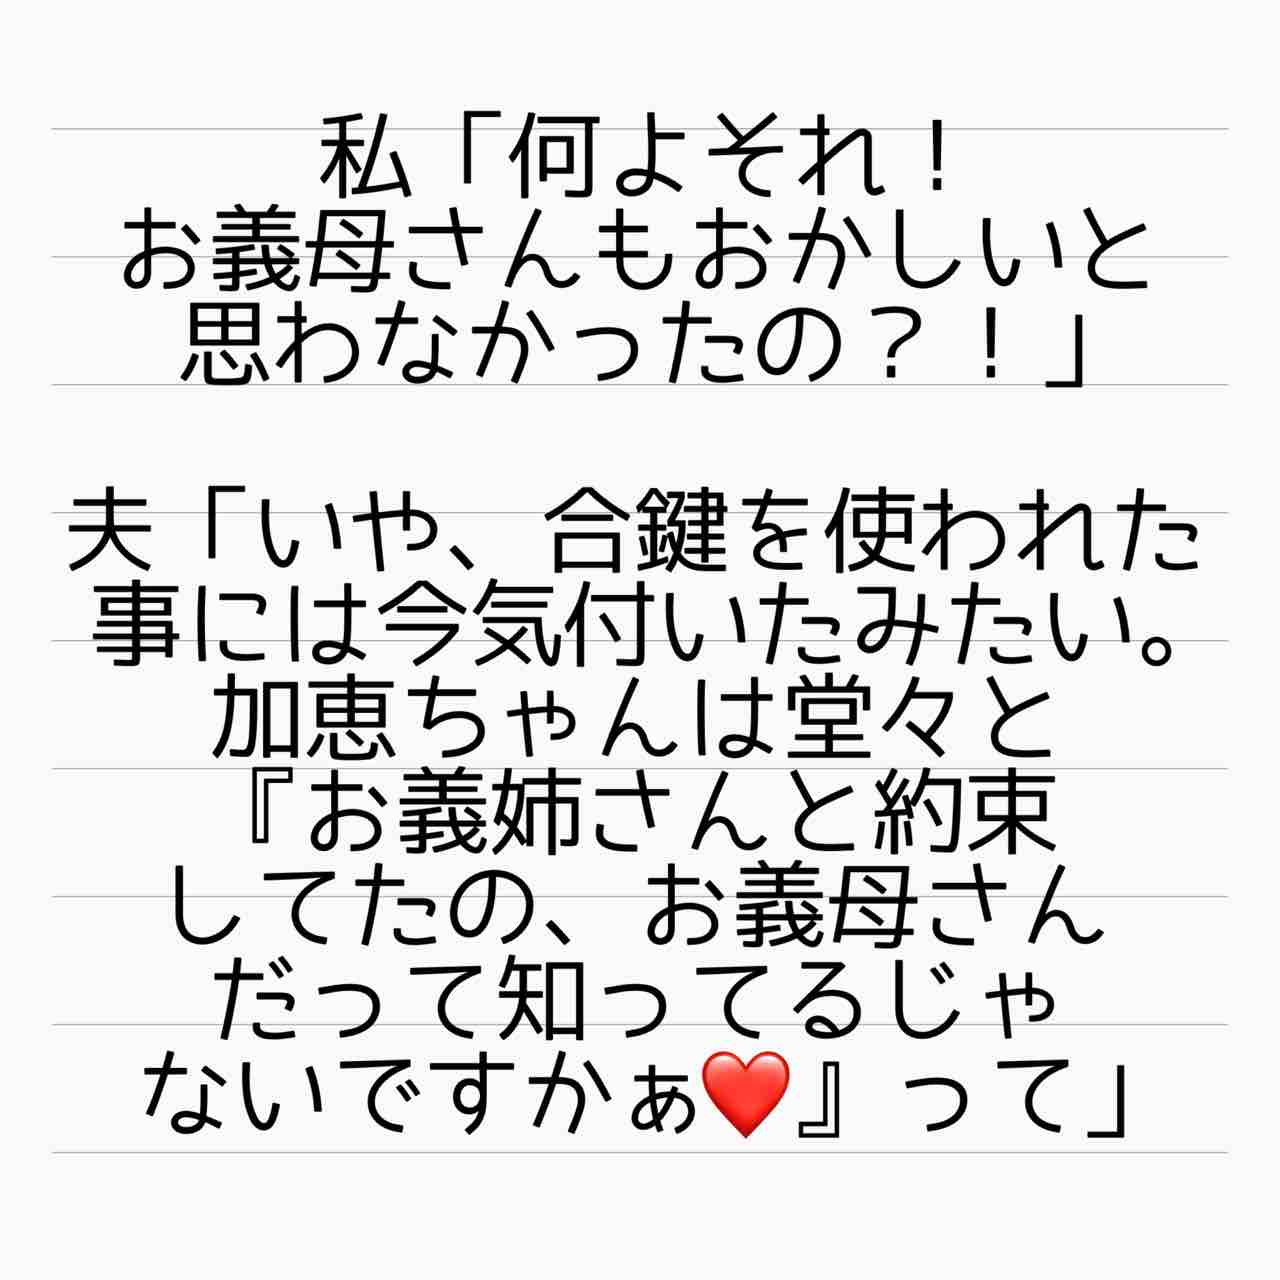 私「何よそれ！
お義母さんもおかしいと
思わなかったの？！」
夫「いや、合鍵を使われた
事には今気付いたみたい。
加恵ちゃんは堂々と
『お義姉さんと約束
してたの、お義母さん
だって知ってるじゃ
ないですかぁ❤️』って」